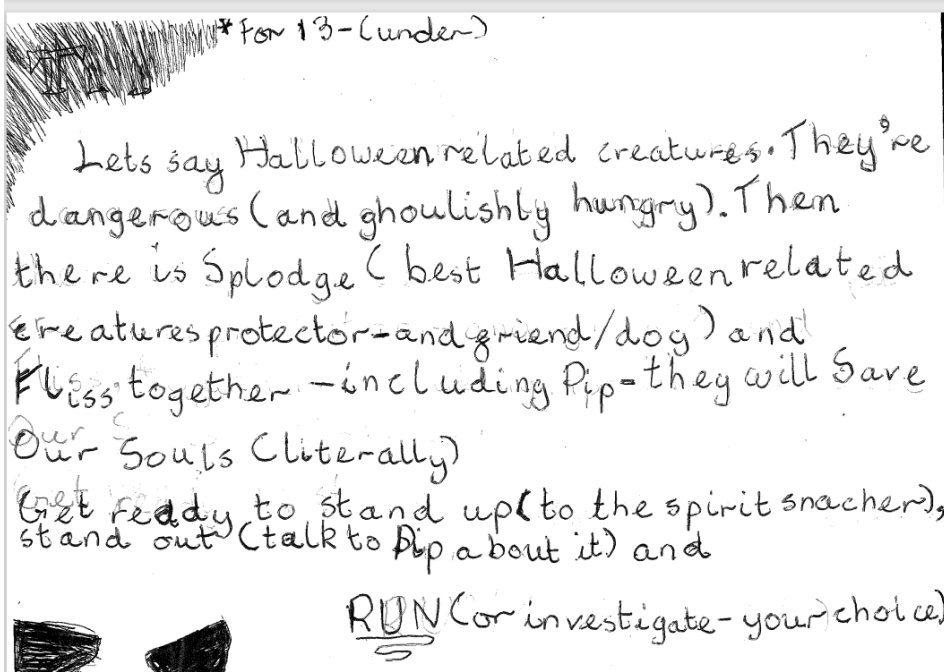 * For 13-(under)
Lets say Halloween related creatures. They're
dangerous (and ghoulishly hungry). Then
there is Splodge (best Halloween related
creatures protector-and friend/dog) and
Fliss together - including Pip - they will Save
Our Souls (literally)
Get ready to stand up (to the spirit snacher),
stand out (talk to Pip about it) and
RUN (or investigate - your choice)